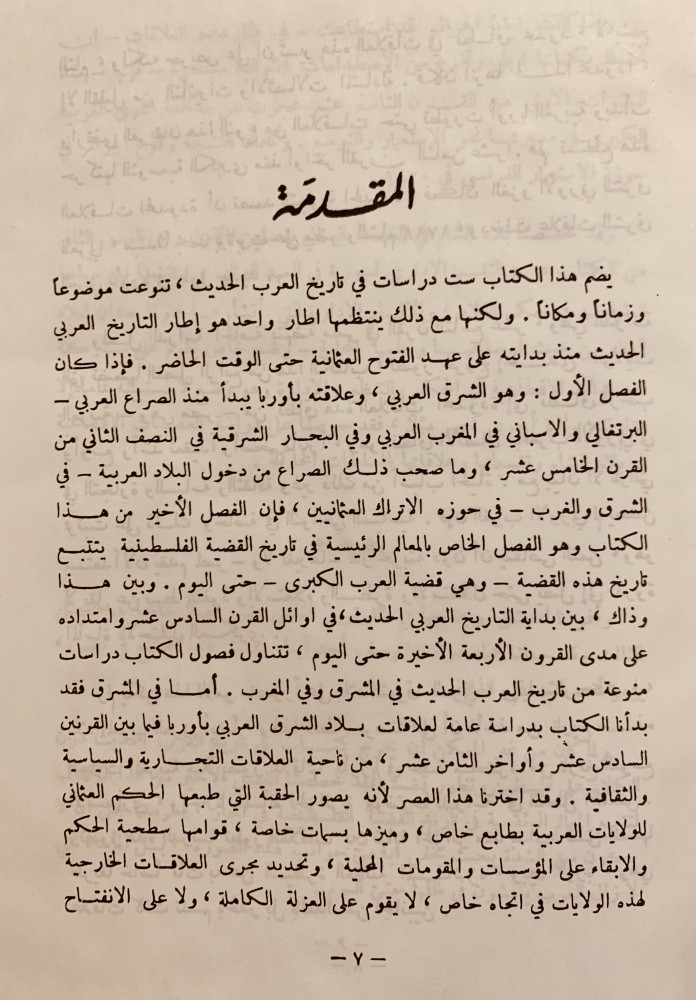 المقدمة
يضم هذا الكتاب ست دراسات في تاريخ العرب الحديث ، تنوعت موضوعاً
وزماناً ومكاناً . ولكنها مع ذلك ينتظمها اطار واحد هو إطار التاريخ العربي
الحديث منذ بدايته على عهد الفتوح العثمانية حتى الوقت الحاضر . فإذا كان
الفصل الأول : وهو الشرق العربي ، وعلاقته بأوربا يبدأ منذ الصراع العربي –
البرتغالي والاسباني في المغرب العربي وفي البحار الشرقية في النصف الثاني من
القرن الخامس عشر ، وما صحب ذلك الصراع من دخول البلاد العربية – في
الشرق والغرب – في حوزه الاتراك العثمانيين ، فإن الفصل الأخير من هذا
الكتاب وهو الفصل الخاص بالمعالم الرئيسية في تاريخ القضية الفلسطينية يتتبع
تاريخ هذه القضية – وهي قضية العرب الكبرى – حتى اليوم . وبين هذا
وذاك ، بين بداية التاريخ العربي الحديث،في اوائل القرن السادس عشر وامتداده
على مدى القرون الأربعة الأخيرة حتى اليوم ، تتناول فصول الكتاب دراسات
منوعة من تاريخ العرب الحديث في المشرق وفي المغرب . أما في المشرق فقد
بدأنا الكتاب بدراسة عامة لعلاقات بلاد الشرق العربي بأوربا فيما بين القرنين
السادس عشر وأواخر الثامن عشر ، من ناحية العلاقات التجارية والسياسية
والثقافية . وقد اخترنا هذا العصر لأنه يصور الحقبة التي طبعها الحكم العثماني
للولايات العربية بطابع خاص ، وميزها بسمات خاصة ، قوامها سطحية الحكم
والابقاء على المؤسسات والمقومات المحلية ، وتحديد مجرى العلاقات الخارجية
لهذه الولايات في اتجاه خاص ، لا يقوم على العزلة الكاملة ، ولا على الانفتاح
– ٧ –